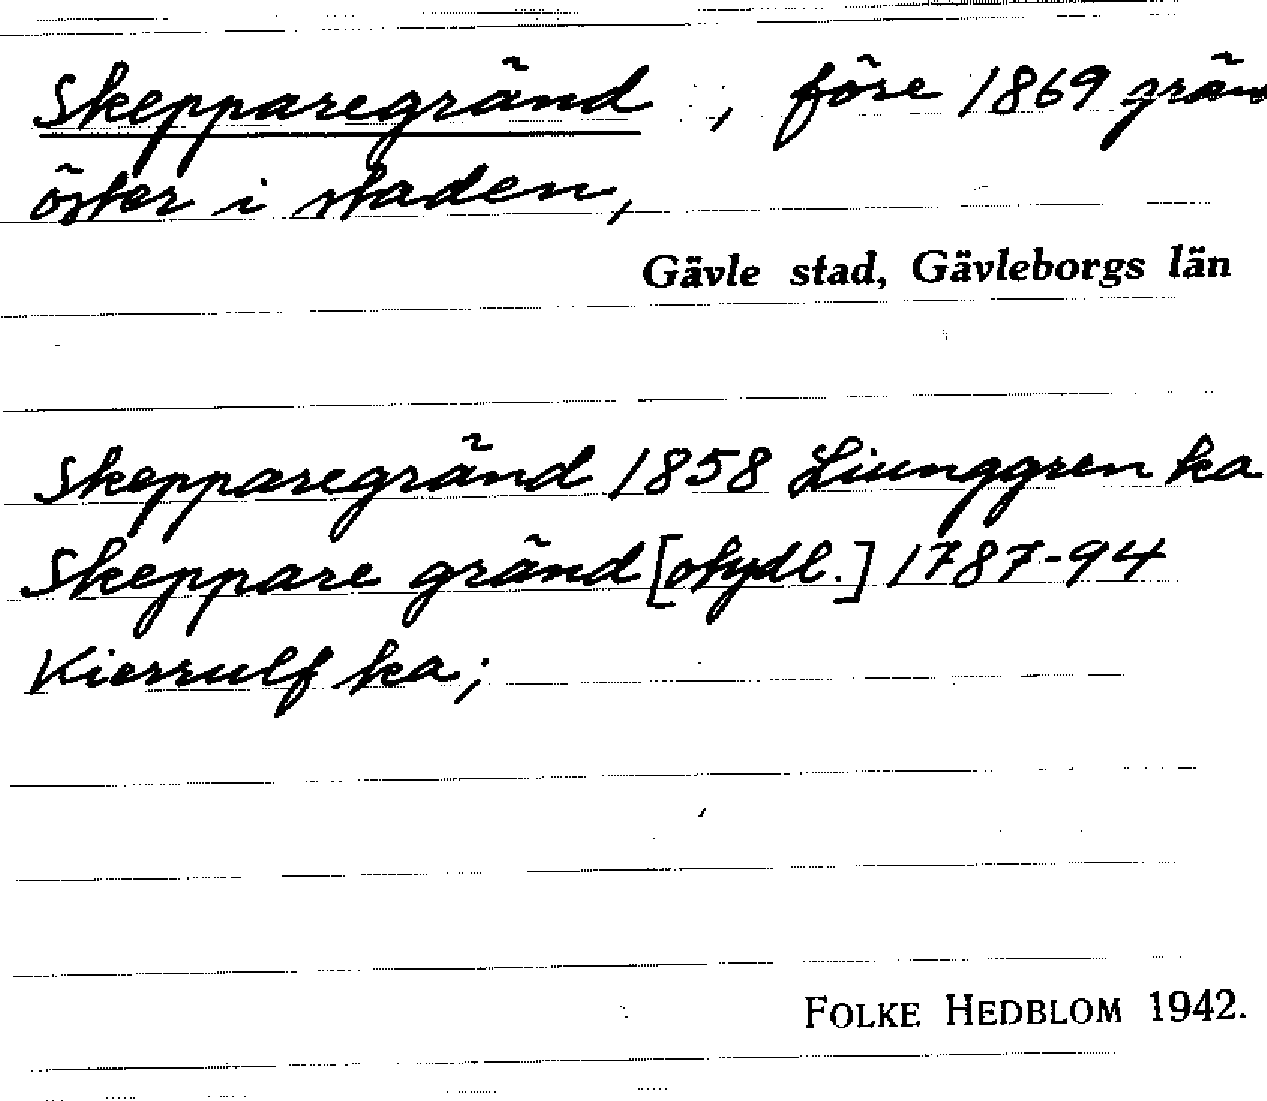 Skepparegränd , före 1869 grän
öster i staden,
Gävle stad, Gävleborgs län
Skepparegränd 1858 Ljunggren ka
Skeppare gränd [otydl.] 1787-94
Kierrulf ka;
FOLKE HEDBLOM 1942.